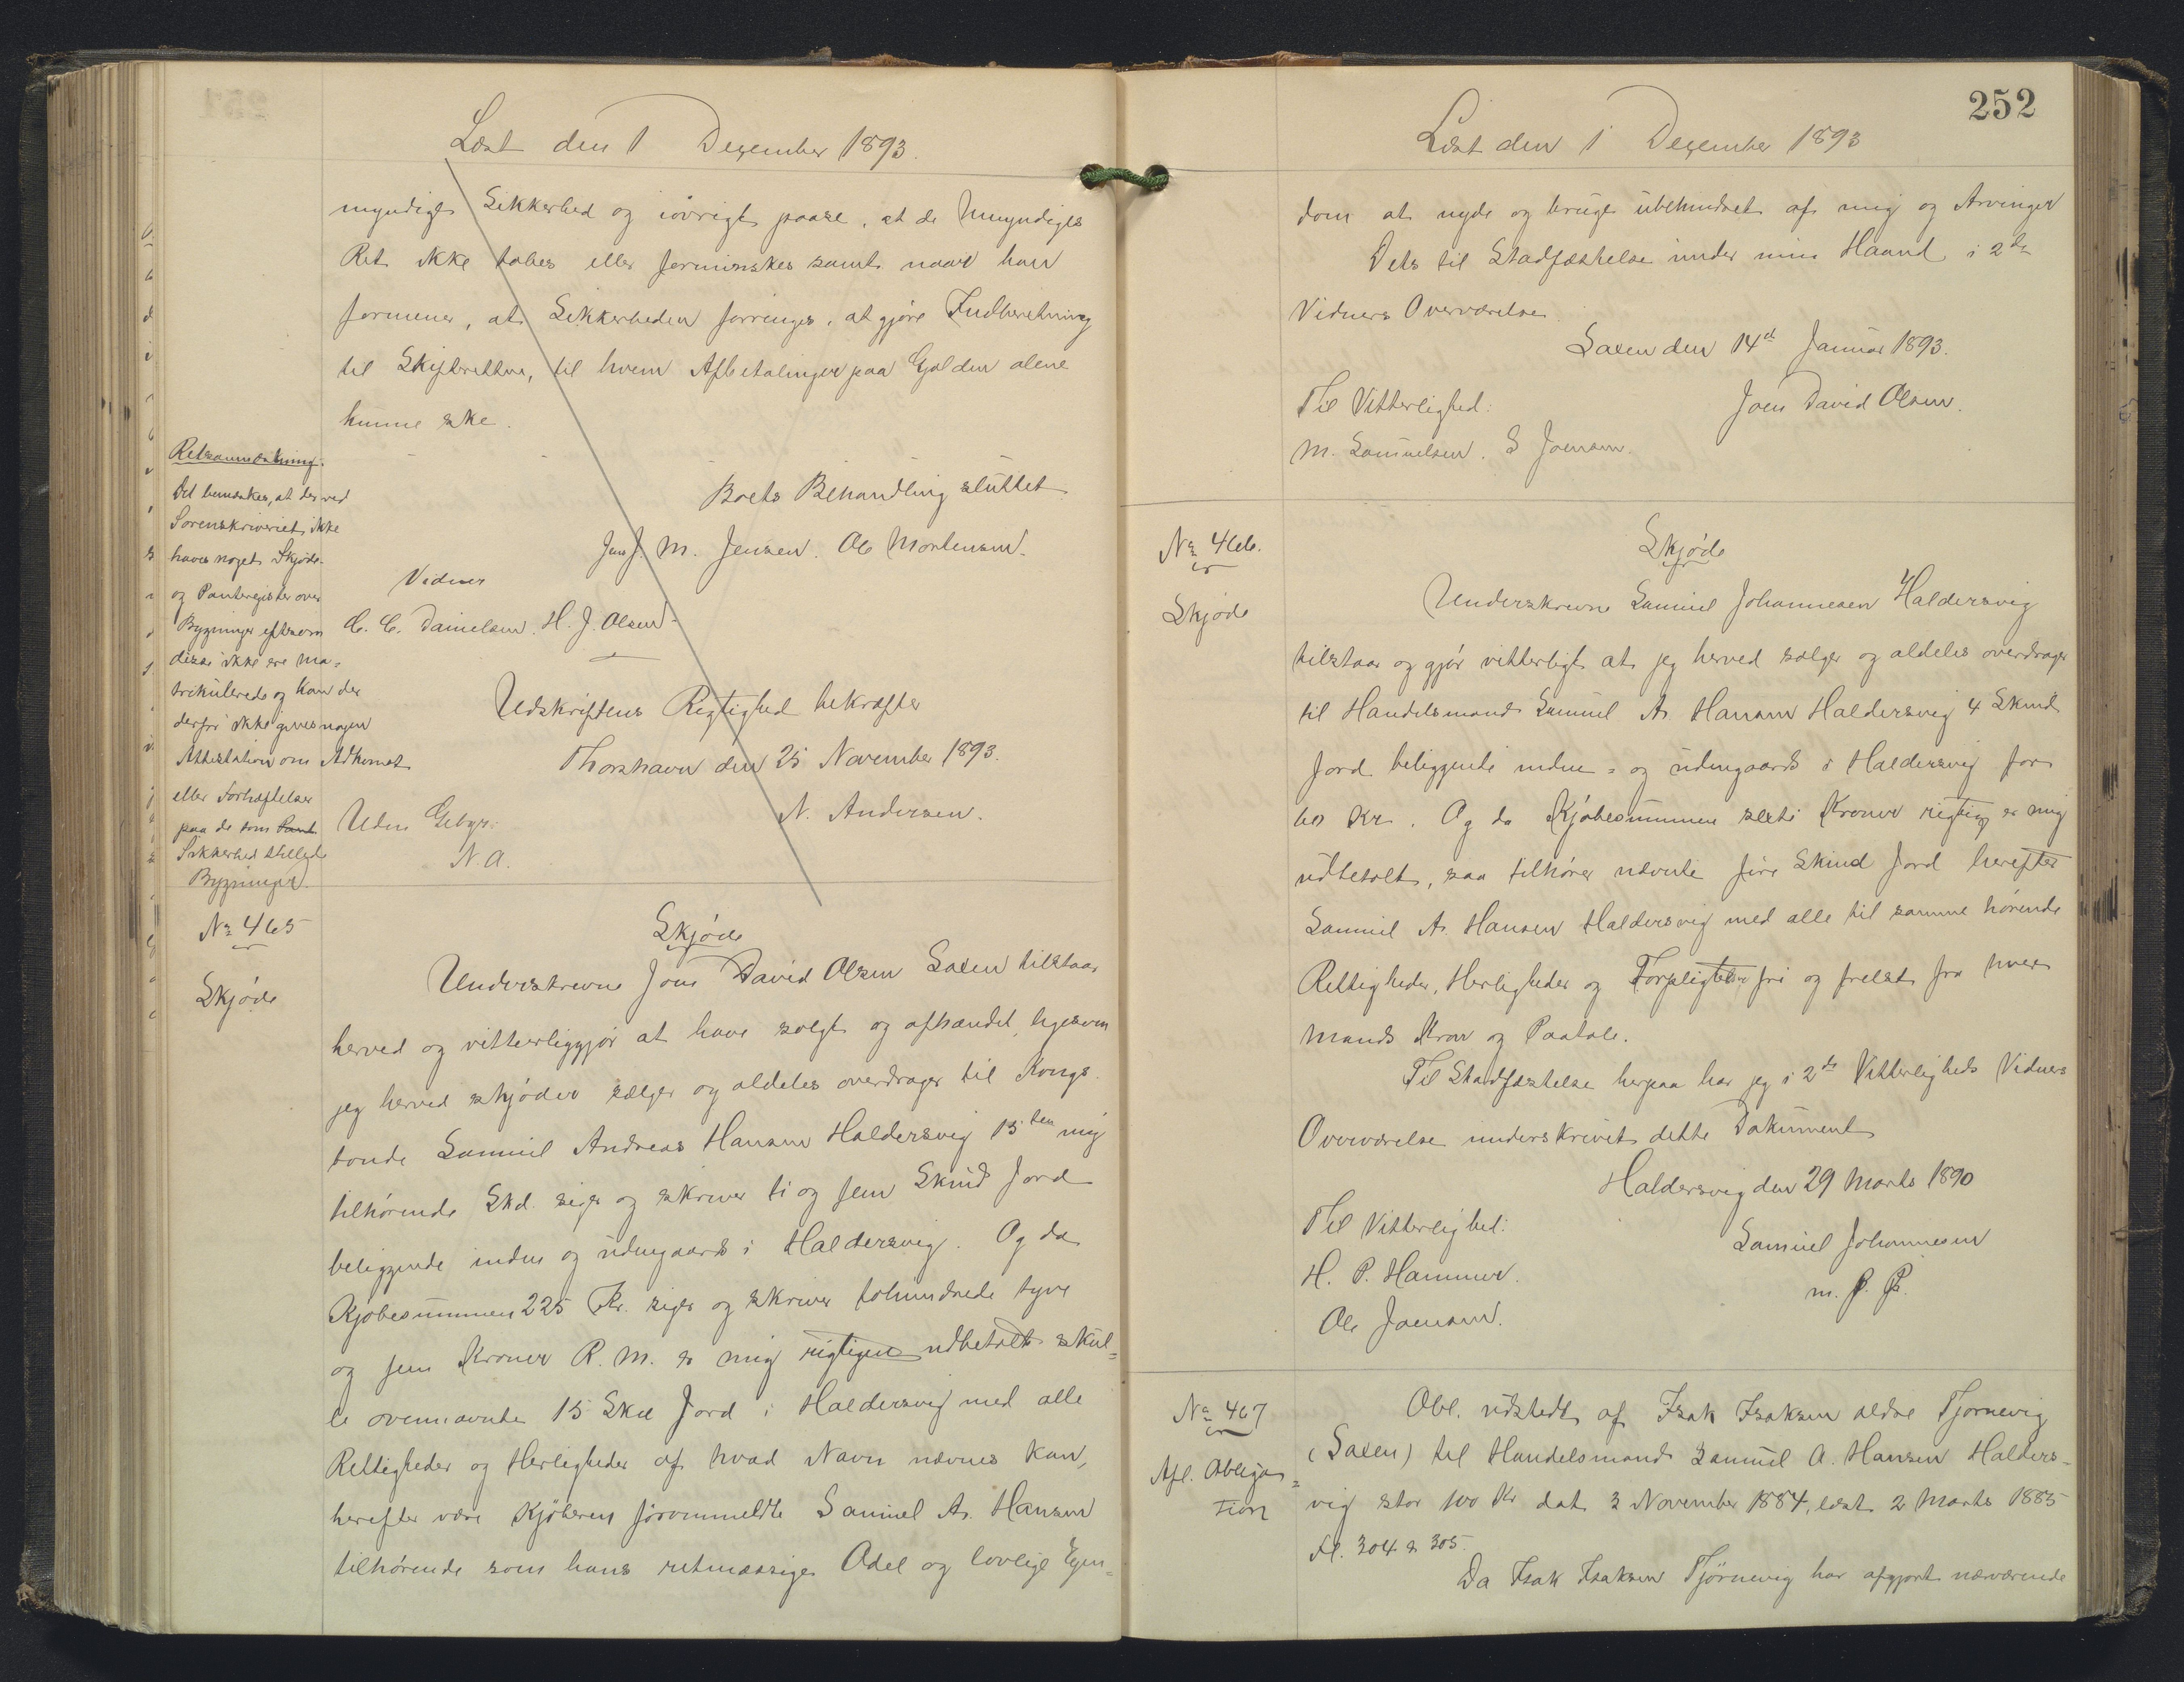 Læst den 1 December 1893.
myndiges Sikkerhed og iøvrigt paase, at de Umyndiges
Ret ikke tabes eller forminskes samt naar han
formener, at Sikkerheden forringes, at gjøre Indberetning
til Skifteretten, til hvem Afbetalinger paa Gjælden alene
kunne ske.
Boets Behandling sluttet
Jens J. M. Jensen. Ole Mortensen.
Vidner
C. C. Danielsen. H. J. Olsen.
Udskriftens Rigtighed bekræfter
Thorshavn den 25 November 1893.
N. Andersen.
Uden Gebyr.
N. A.
Retsanmærkning.
Det bemærkes, at der ved
Sorenskriveriet ikke
haves noget Skjøde-
og Panteregister over
Bygninger eftersom
disse ikke ere Ma-
trikulerede og kan der
derfor ikke gives nogen
Attestation om Adkomst
eller Forhæftelser
paa de som Pant
Sikkerhed stillede
Bygninger.
No 465
Skjøde
Skjøde
Underskrevne Joen David Olsen Saxen tilstaar
herved og vitterliggjør at have solgt og afhændet, ligesom
jeg herved skjøder sælger og aldeles overdrager til Kongs-
bonde Samuel Andreas Hansen Haldersvig 15ten mig
tilhørende Skd. siger og skriver ti og fem Skind Jord
beliggende inden og udengaards i Haldersvig. Og da
Kjøbesummen 225 Kr. siger og skriver tohundrede tyve
og fem Kroner R. M. er mig rigtigen udbetalt skul=
le ovennævnte 15 Skd Jord i Haldersvig med alle
Rettigheder og Herligheder af hvad Navn nævnes kan,
herefter være Kjøberen førommeldte Samuel A. Hansen
tilhørende som hans retmæssige Odel og lovlige Ejen=
252
Læst den 1 December 1893
dom at nyde og bruge ubehindret af mig og Arvinger
Dets til Stadfæstelse under min Haand i 2de
Vidners Overværelse.
Saxen den 14de Januar 1893.
Til Vitterlighed:
Joen David Olsen.
M. Samuelsen. S Joensen.
No 466.
Skjøde
Skjøde
Underskrevne Samuel Johannesen Haldersvig
tilstaar og gjør vitterligt at jeg herved sælger og aldeles overdrager
til Handelsmand Samuel A. Hansen Haldersvig 4 Skind
Jord beliggende inden- og udengaards i Haldersvig for
60 Kr. Og da Kjøbesummen sexti Kroner rigtig er mig
udbetalt, saa tilhører nævnte fire Skind Jord herefter
Samuel A. Hansen Haldersvig med alle til samme hørende
Rettigheder, Herligheder og Forpligtelser fri og frelst fra hver
Mands Krav og Paatale.
Til Stadfæstelse herpaa har jeg i 2de Vitterligheds Vidners
Overværelse underskrivet dette Dokument
Haldersvig den 29 Marts 1890
Til Vitterlighed:
Samuel Johannesen
H. P. Hammer.
m. f. P.
Ole Joensen.
No 467
Afl. Obliga=
tion
Obl. udstedt af Isak Isaksen ældre Tjørnevig
(Saxen) til Handelsmand Samuel A. Hansen Halders-
vig stor 100 Kr dat 3 November 1884, læst 2 Marts 1885
fol. 304 & 305.
Da Isak Isaksen Tjørnevig har afgjort nærværende